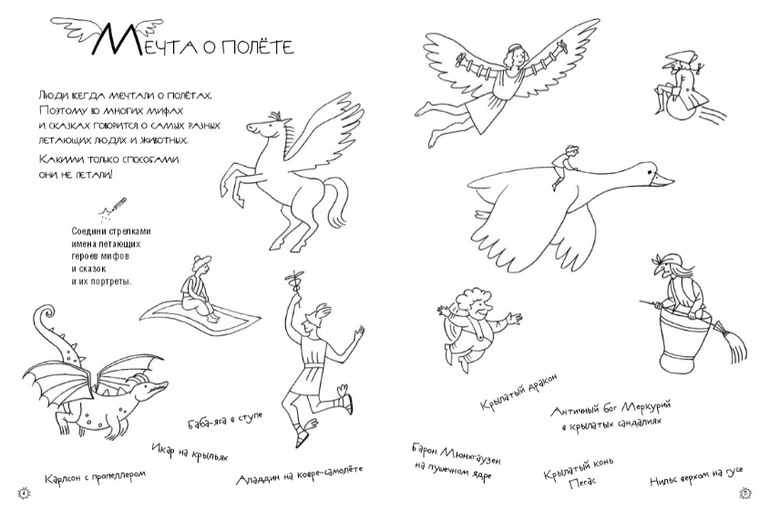 Мечта о полёте
Люди всегда мечтали о полётах.
Поэтому во многих мифах
и сказках говорится о самых разных
летающих людях и животных.
Какими только способами
они не летали!
Соедини стрелками
имена летающих
героев мифов
и сказок
и их портреты.
Баба-яга в ступе
Икар на крыльях
Карлсон с пропеллером
Аладдин на ковре-самолёте
4
Крылатый дракон
Античный бог Меркурий
в крылатых сандалиях
Барон Мюнхгаузен
на пушечном ядре
Крылатый конь
Пегас
Нильс верхом на гусе
5